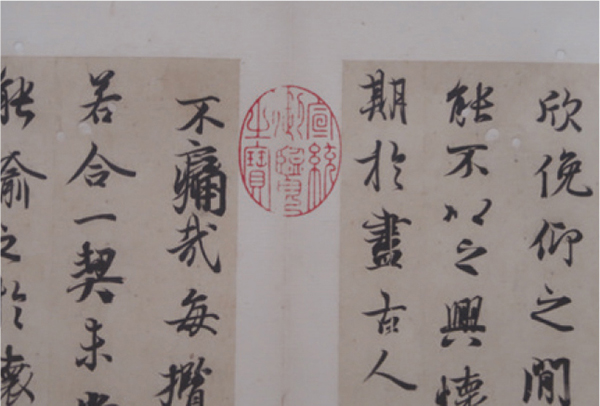 欣俛仰之間
能不以之興懷
期於盡古人
宣統御覽之寶
不痛哉每攬
若合一契未
能喻之於懷